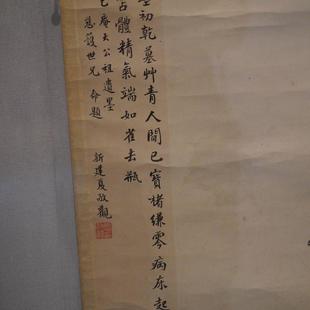 墨初乾墓艸青人間已寶褚縑零病床起
占體精氣端如雀去瓶
乙庵大公祖遺墨
慈護世兄命題
新建夏敬觀